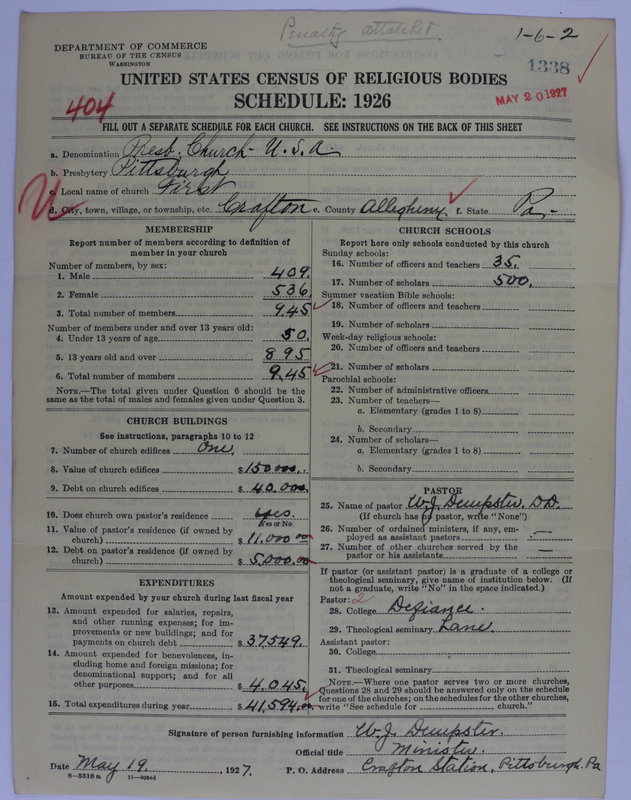 Penalty attached
1-6-2
DEPARTMENT OF COMMERCE
BUREAU OF THE CENSUS
WASHINGTON
1338
MAY 20 1927
UNITED STATES CENSUS OF RELIGIOUS BODIES
SCHEDULE: 1926
404
FILL OUT A SEPARATE SCHEDULE FOR EACH CHURCH. SEE INSTRUCTIONS ON THE BACK OF THIS SHEET
a. Denomination Presb. Church - U.S.A.
b. Presbytery Pittsburgh
c. Local name of church First
d. City, town, village, or township, etc. Crafton e. County Allegheny. f. State Pa.
MEMBERSHIP
Report number of members according to definition of
member in your church
Number of members, by sex:
1. Male 409.
2. Female 536.
3. Total number of members 945
Number of members under and over 13 years old:
4. Under 13 years of age 50.
5. 13 years old and over 895
6. Total number of members 945
NOTE.—The total given under Question 6 should be the
same as the total of males and females given under Question 3.
CHURCH BUILDINGS
See instructions, paragraphs 10 to 12
7. Number of church edifices One.
8. Value of church edifices $150000.
9. Debt on church edifices $40.000.
10. Does church own pastor's residence yes.
Yes or No
11. Value of pastor's residence (if owned by
church) $11.000.00
12. Debt on pastor's residence (if owned by
church) $5000.00
EXPENDITURES
Amount expended by your church during last fiscal year
13. Amount expended for salaries, repairs,
and other running expenses; for im-
provements or new buildings; and for
payments on church debt $37549.
14. Amount expended for benevolences, in-
cluding home and foreign missions; for
denominational support; and for all
other purposes $4.045.
15. Total expenditures during year $41,594.00
CHURCH SCHOOLS
Report here only schools conducted by this church
Sunday schools:
16. Number of officers and teachers 35.
17. Number of scholars 500.
Summer vacation Bible schools:
18. Number of officers and teachers
19. Number of scholars
Week-day religious schools:
20. Number of officers and teachers
21. Number of scholars
Parochial schools:
22. Number of administrative officers
23. Number of teachers—
a. Elementary (grades 1 to 8)
b. Secondary
24. Number of scholars—
a. Elementary (grades 1 to 8)
b. Secondary
PASTOR
25. Name of pastor W.J. Dempster, D.D.
(If church has no pastor, write "None")
26. Number of ordained ministers, if any, em-
ployed as assistant pastors —
27. Number of other churches served by the
pastor or his assistants —
If pastor (or assistant pastor) is a graduate of a college or
theological seminary, give name of institution below. (If
not a graduate, write "No" in the space indicated.)
Pastor: 2
28. College Defiance.
29. Theological seminary Lane.
Assistant pastor:
30. College
31. Theological seminary
NOTE.—Where one pastor serves two or more churches,
Questions 28 and 29 should be answered only on the schedule
for one of the churches; on the schedules for the other churches,
write "See schedule for church."
Signature of person furnishing information W.J. Dempster.
Official title Minister.
Date May 19, 1927. P. O. Address Crafton Station, Pittsburgh. Pa
8-5518 a 11-9084d